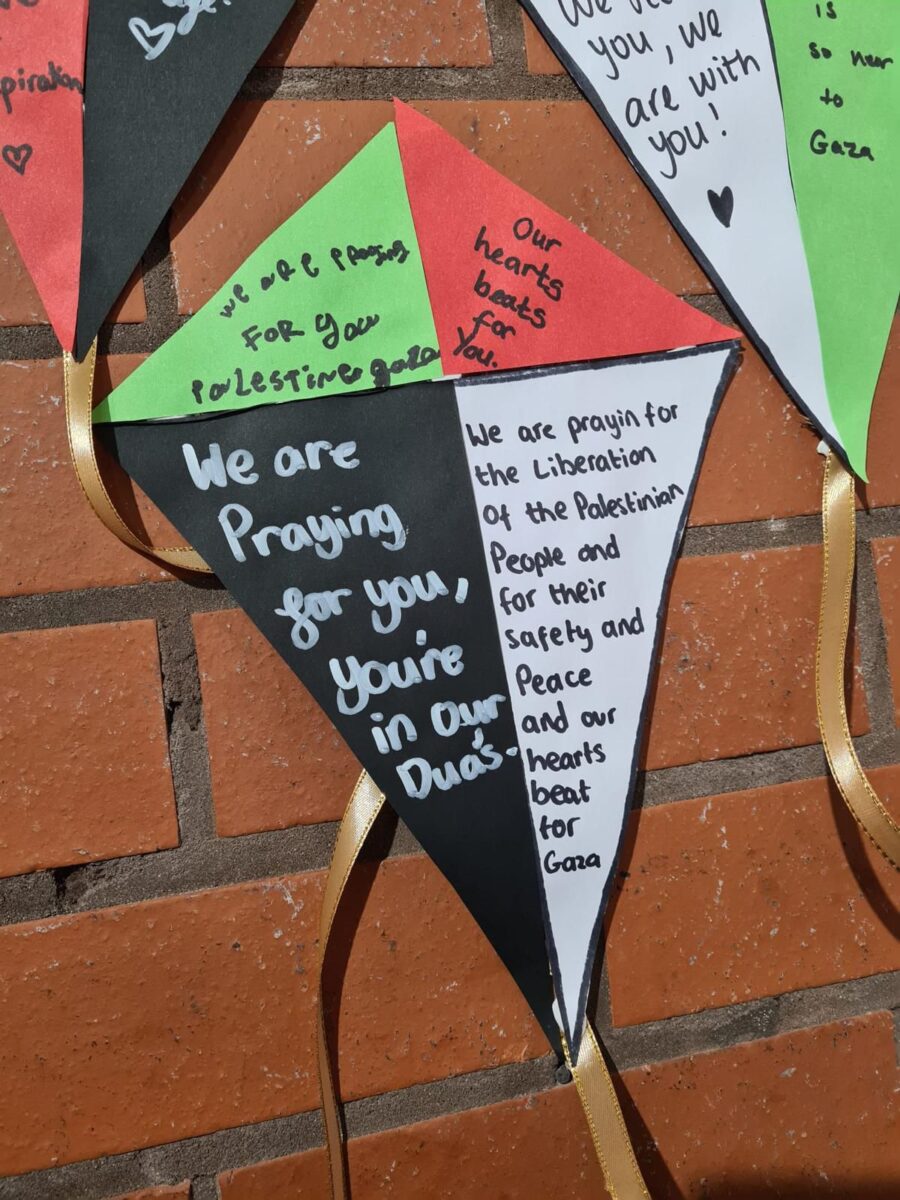 piration
you, we
are with
you!
is
so near
to
Gaza
we are praying
FOR you
Palestine gaza
Our
hearts
beats
for
You.
We are
Praying
for you,
you're
in Our
Dua's.
We are prayin for
the Liberation
Of the Palestinian
People and
for their
safety and
Peace
and our
hearts
beat
for
Gaza